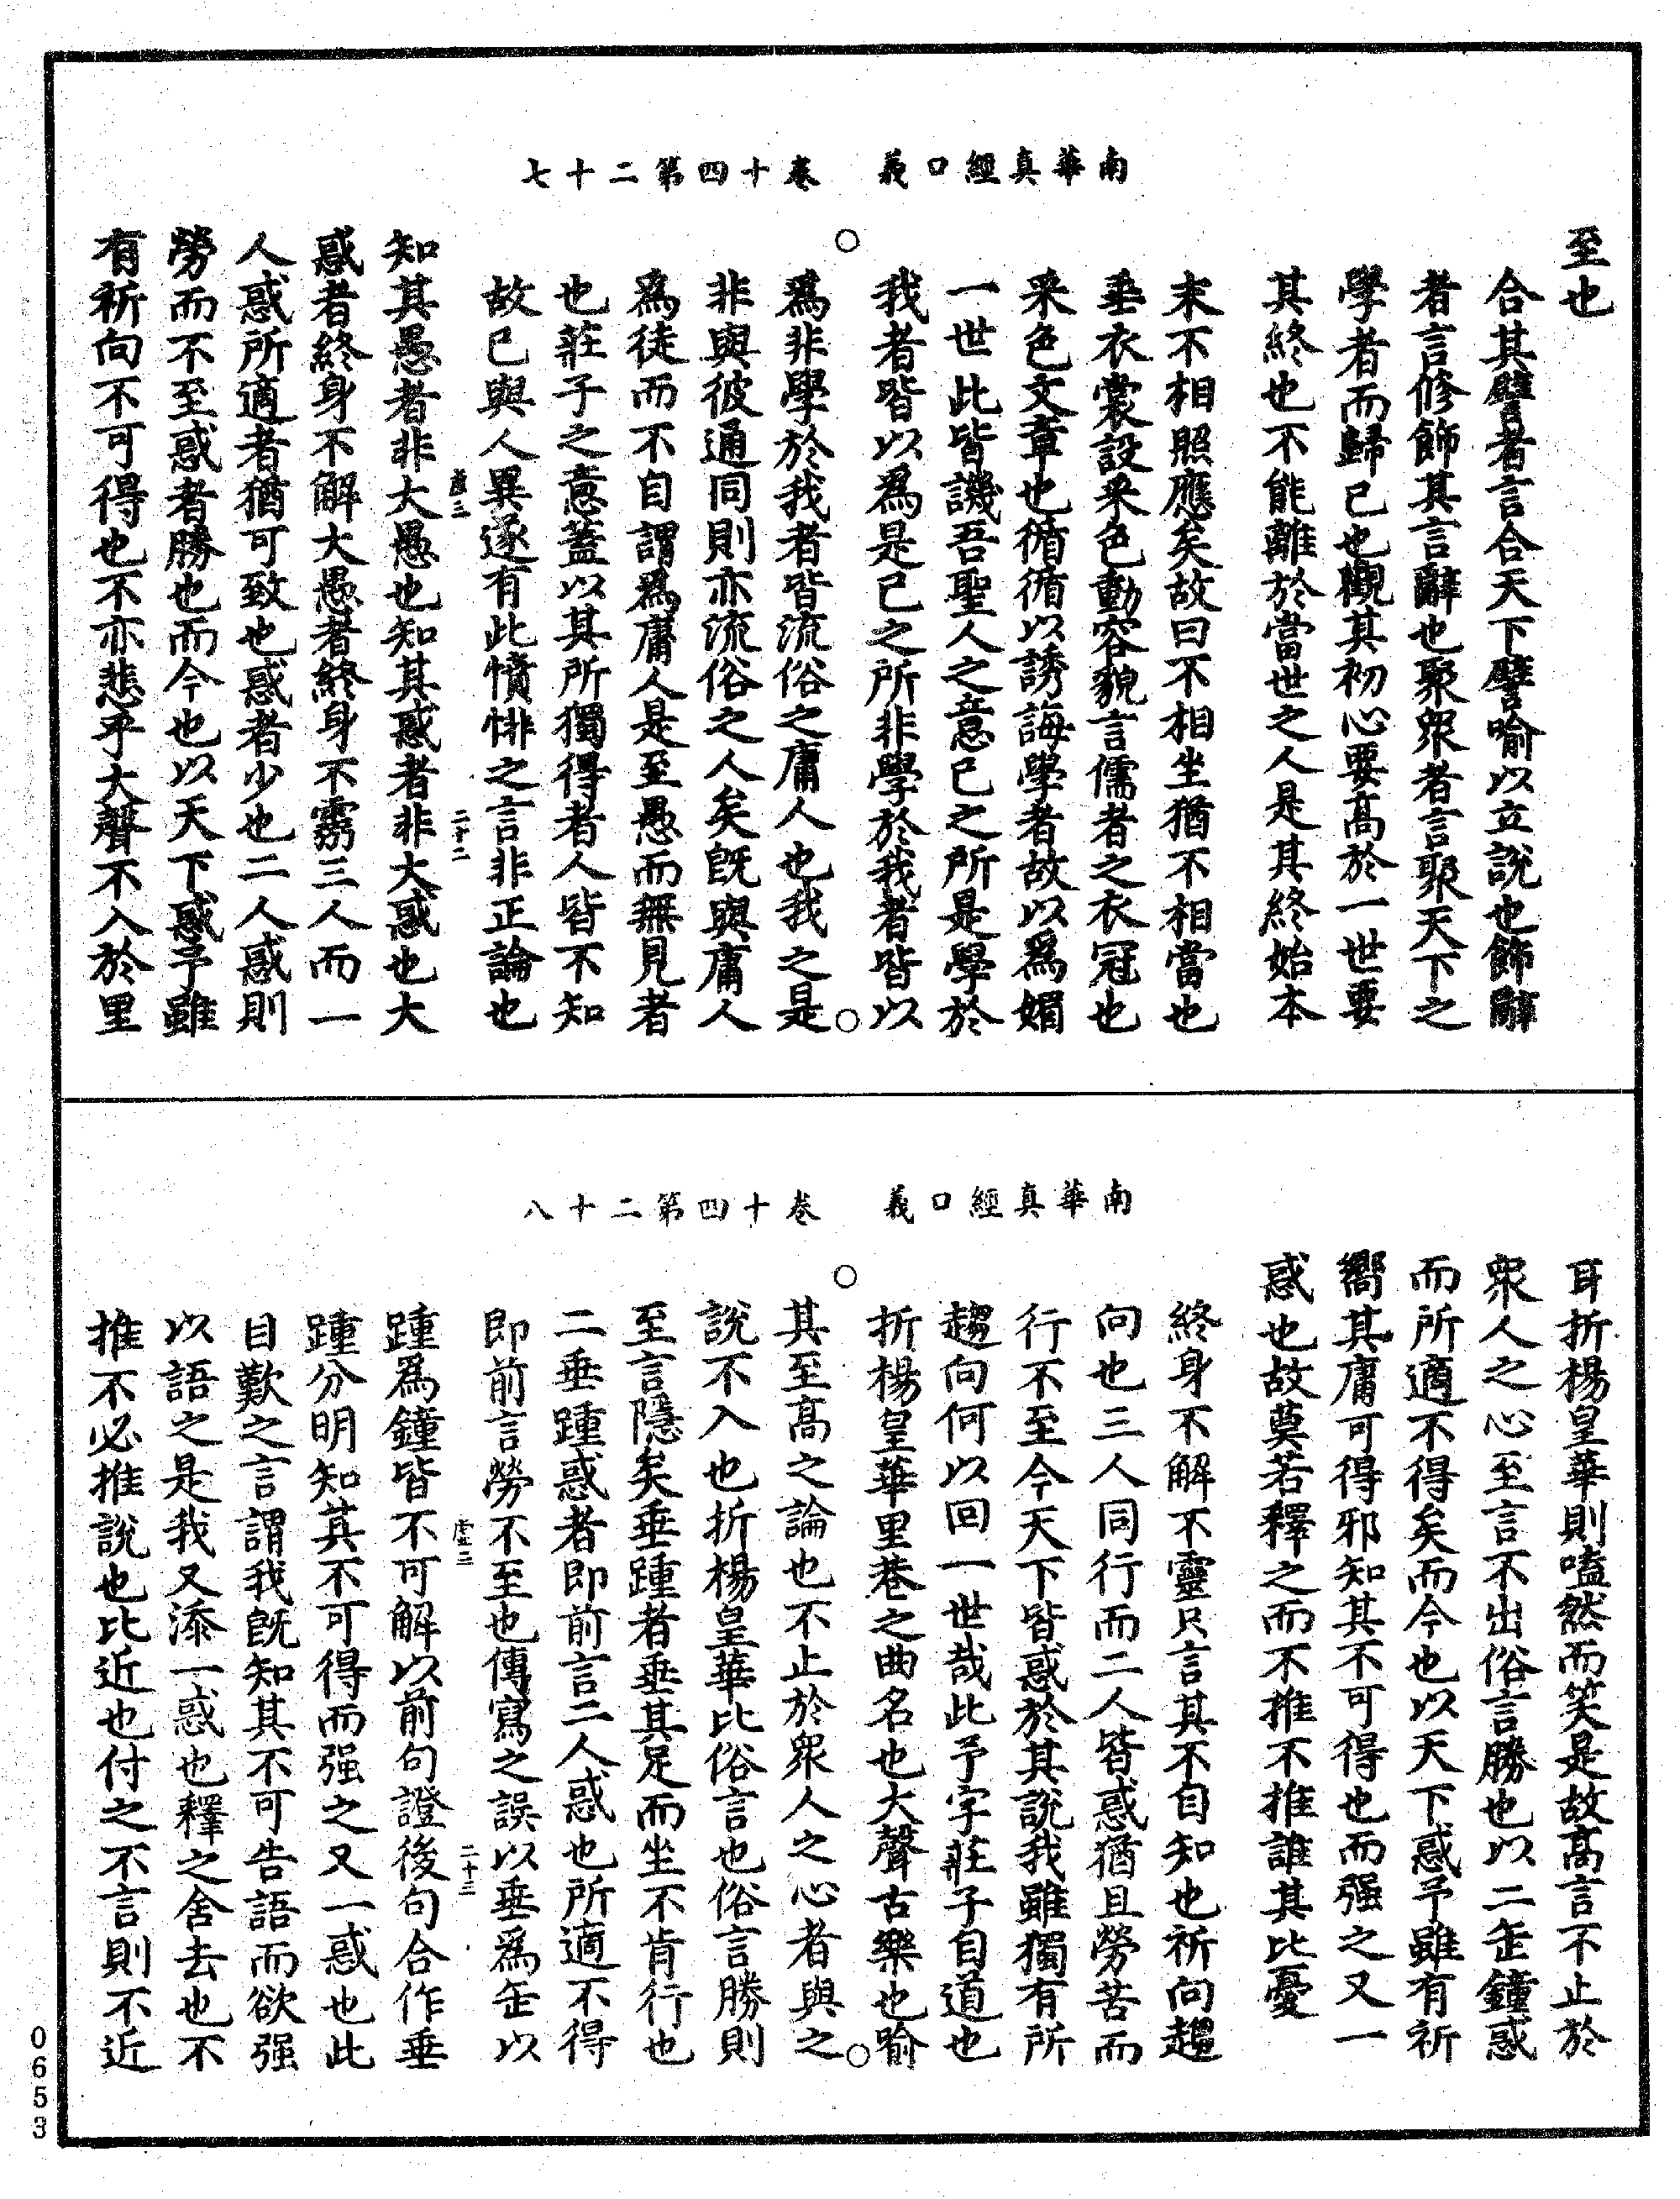 南華真經口義　卷十四第二十七
至也
合其譬者言合天下譬喻以立說也飾辭
者言修飾其言辭也聚眾者言聚天下之
學者而歸己也觀其初心要高於一世要
其終也不能離於當世之人是其終始本
末不相照應矣故曰不相坐猶不相當也
垂衣裳設采色動容貌言儒者之衣冠也
采色文章也循循以誘誨學者故以為媚
一世此皆譏吾聖人之意已之所是學於
我者皆以為是已之所非學於我者皆以
為非學於我者皆流俗之庸人也我之是
非與彼通同則亦流俗之人矣旣與庸人
為徒而不自謂為庸人是至愚而無見者
也莊子之意蓋以其所獨得者人皆不知
故已與人異遂有此憤悱之言非正論也
知其愚者非大愚也知其惑者非大惑也大
惑者終身不解大愚者終身不靈三人而一
人惑所適者猶可致也惑者少也二人惑則
勞而不至惑者勝也而今也以天下惑予雖
有祈向不可得也不亦悲乎大聲不入於里
南華真經口義　卷十四第二十八
耳折楊皇華則嗑然而笑是故高言不止於
眾人之心至言不出俗言勝也以二缶鐘惑
而所適不得矣而今也以天下惑予雖有祈
嚮其庸可得邪知其不可得也而强之又一
惑也故莫若釋之而不推不推誰其比憂
終身不解不靈只言其不自知也祈向趨
向也三人同行而二人皆惑猶且勞苦而
行不至今天下皆惑於其說我雖獨有所
趨向何以回一世哉此予字莊子自道也
折楊皇華里巷之曲名也大聲古樂也喻
其至高之論也不止於眾人之心者與之
說不入也折楊皇華比俗言也俗言勝則
至言隱矣垂踵者垂其足而坐不肯行也
二垂踵惑者即前言二人惑也所適不得
即前言勞不至也傳寫之誤以垂為缶以
踵為鐘皆不可解以前句證後句合作垂
踵分明知其不可得而强之又一惑也此
自歎之言謂我旣知其不可告語而欲强
以語之是我又添一惑也釋之舍去也不
推不必推說也比近也付之不言則不近
二十二
二十三
0653